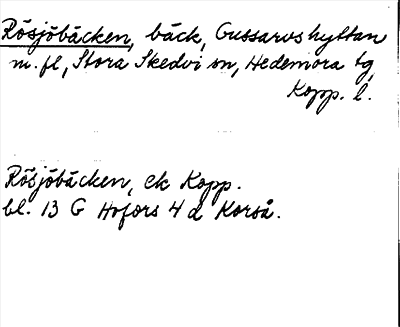 Rösjöbäcken, bäck, Gussarvshyttan
m.fl, Stora Skedvi sn, Hedemora tg,
Kopp. l.
Rösjöbäcken, ek Kopp.
bl. 13 G Hofors 4 d Korså.